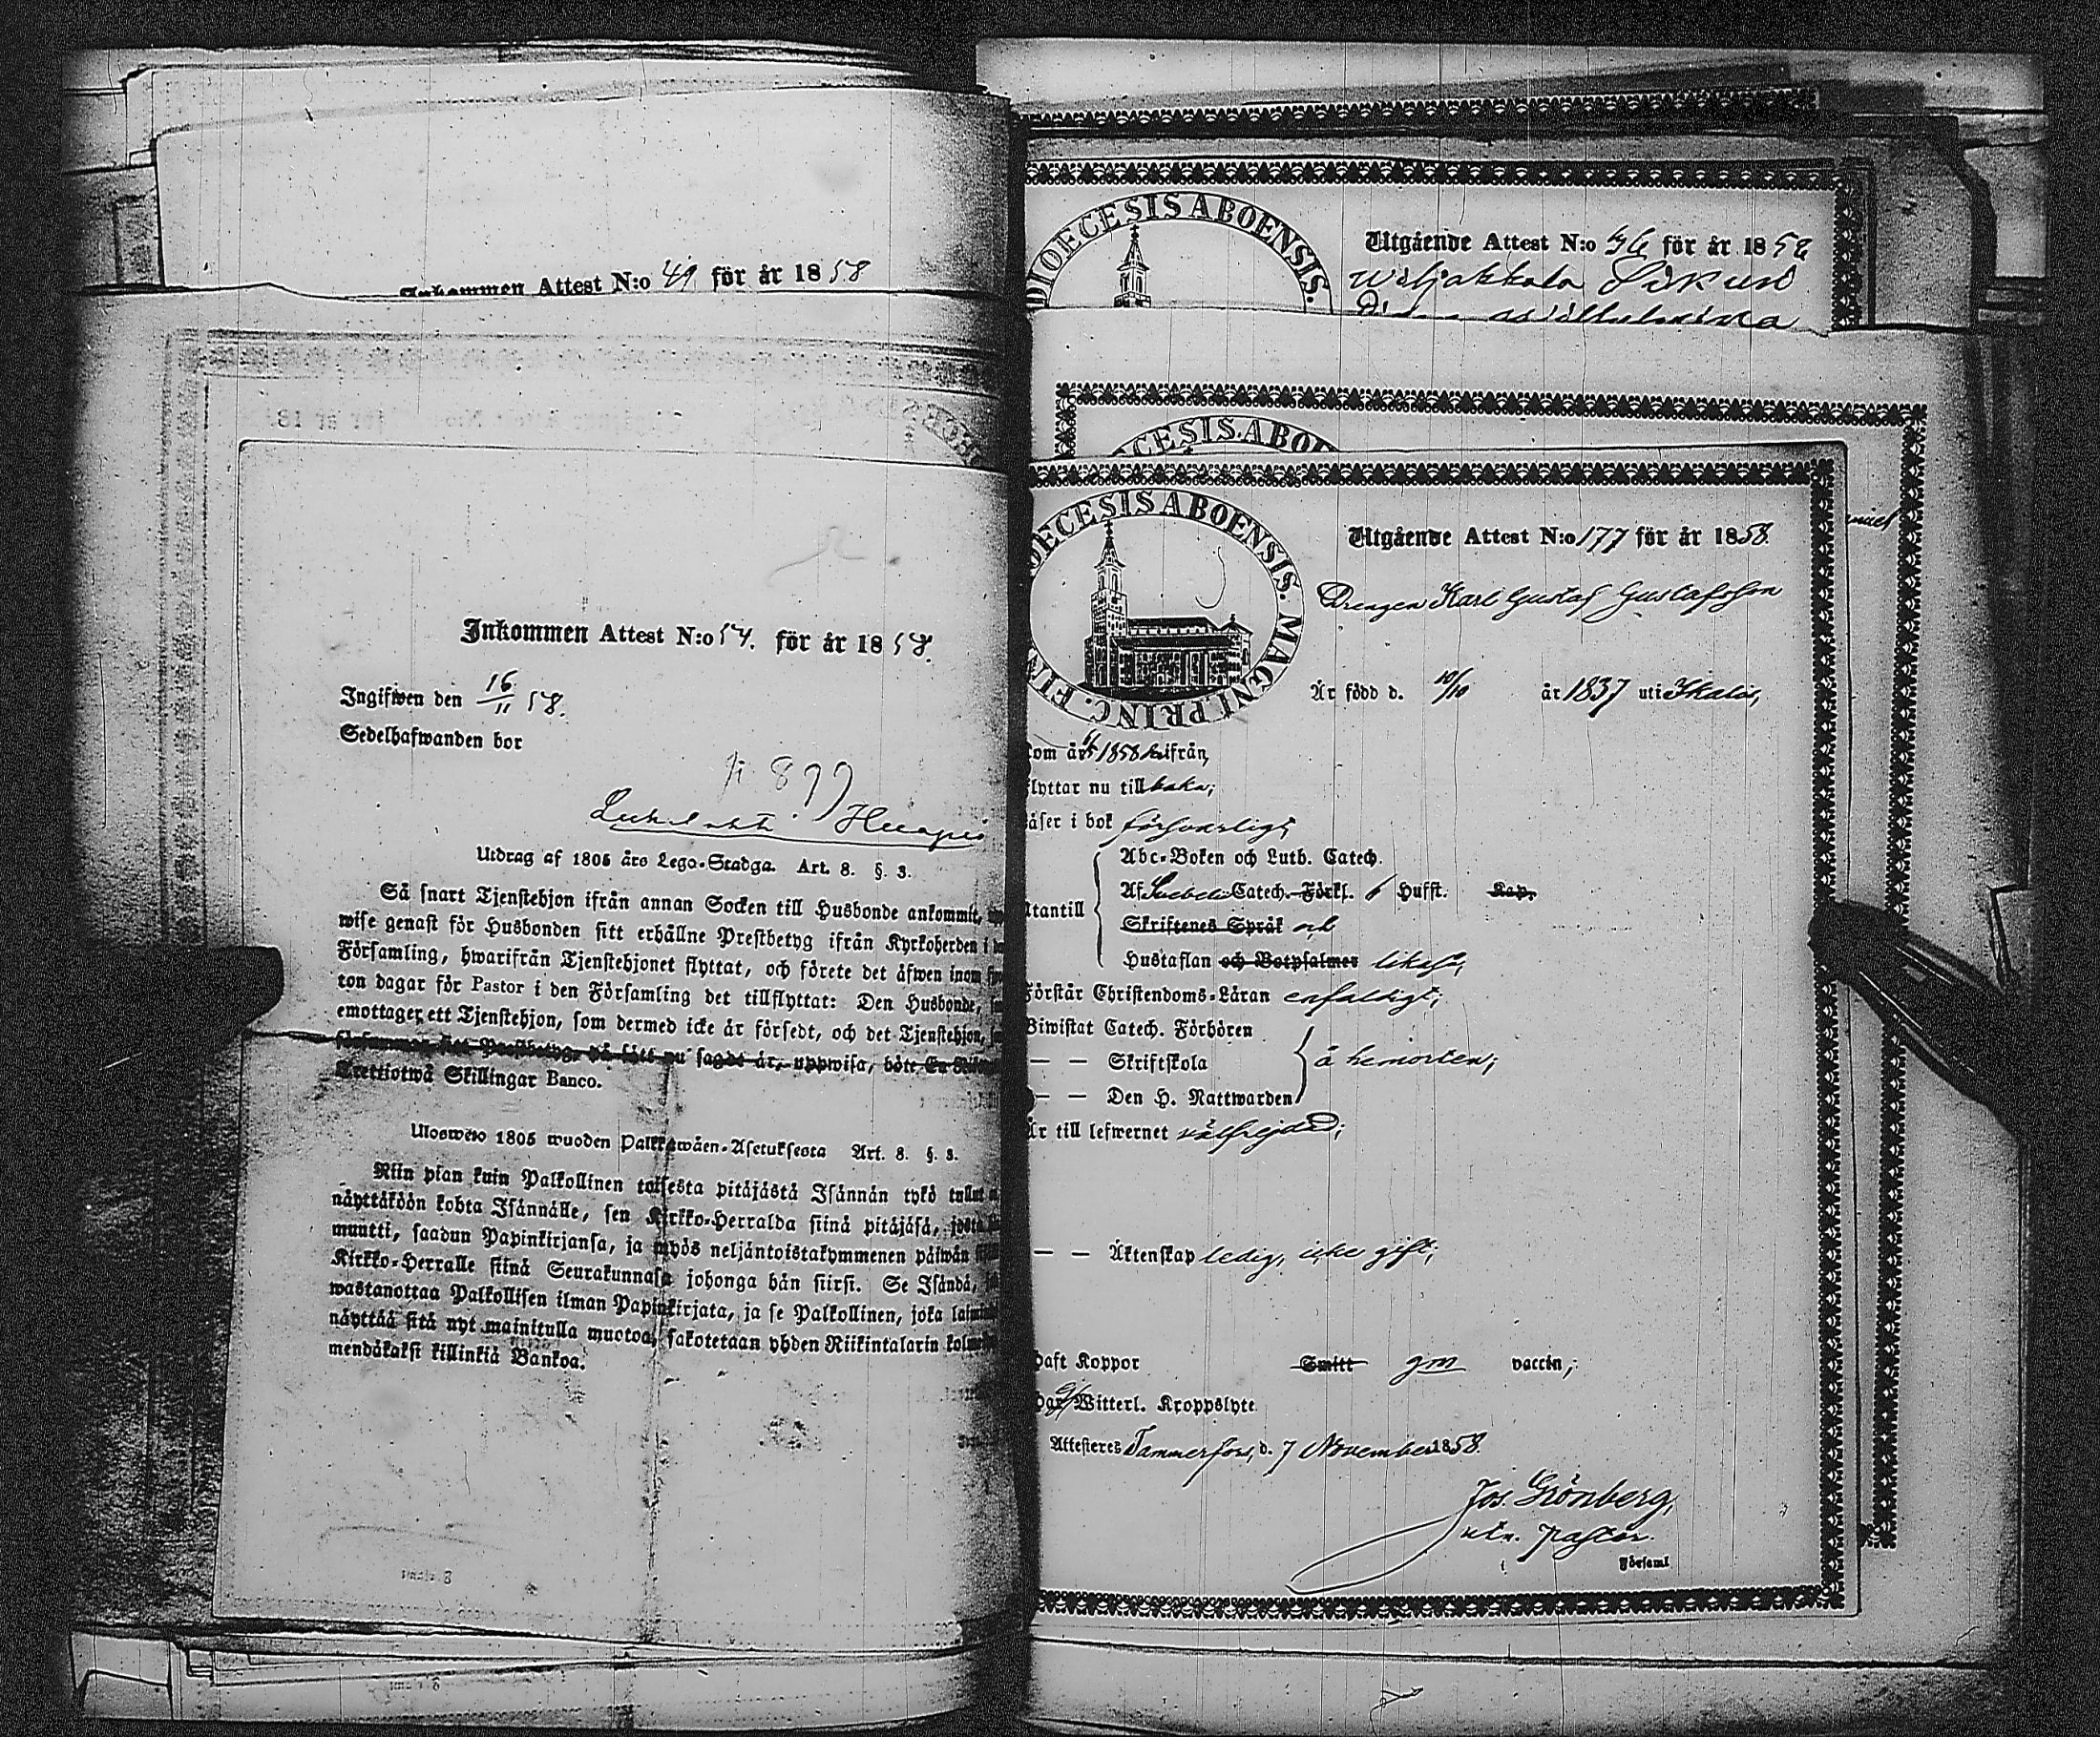 Attest N:o 49 för år 1858
Inkommen Attest N:o 54. för år 1858.
Ingifwen den 16/11 58.
Sedelhafwanden bor
p. 899
Utdrag af 1805 års Lego-Stadga. Art. 8. §. 3.
Så snart Tjenstehjon ifrån annan Socken till Husbonde ankommit,
wise genast för Husbonden sitt erhållne Prestbetyg ifrån Kyrkoherden i
Församling, hwarifrån Tjenstehjonet flyttat, och förete det äfwen inom
ton dagar för Pastor i den Församling det tillflyttat: Den Husbonde,
emottager ett Tjenstehjon, som dermed icke är försedt, och det Tjenstehjon,
sitt Prestbetyg, på sätt nu sagdt är, uppwisa, böte En
Trettiotwå Skillingar Banco.
Uloswето 1805 wuoden Palkkawäen-Asetuksesta Art. 8. §. 3.
Niin pian kuin Palkollinen toisesta pitäjästä Isännän tykö tullut
näyttäköön kohta Isännälle, sen Kirkko-Herralda siinä pitäjäsä,
muutti, saadun Papinkirjansa, ja myös neljäntoistakymmenen päiwän
Kirkko-Herralle siinä Seurakunnasa johonga hän siirsi. Se Isändä,
wastanottaa Palkollisen ilman Papinkirjata, ja se Palkollinen, joka
näyttää sitä nyt mainitulla muotoa, sakotetaan yhden Riikintalarin
mendäkaksi killinkiä Bankoa.
DIOECESIS ABOENSIS.
Utgående Attest N:o för år 185
Wiljakkala
Wilhelmina
CESIS. ABO
OECESIS ABOENSIS. MAGNI PRINC. FIN
Utgående Attest N:o 177 för år 1858.
Drengen Karl Gustaf Gustafsson
Är född d. 10/10 år 1837 uti Ikalis,
om år 1858 härifrån,
lyttar nu tillbaka;
äser i bok försvarligt;
Abc-Boken och Luth. Catech.
Af Svebeli Catech. Förkl. 6 Hufst. Kap.
tantill
Skriftenes Språk och
Hustaflan och Botpsalmer likaså;
Förstår Christendoms-Läran enfaldigt;
Biwistat Catech. Förhören
— — Skriftskola å hemorten;
— — Den H. Nattwarden
Är till lefwernet välfrejdad;
— — Äktenskap ledig, icke gift;
haft Koppor Smitt gm vaccin;
Witterl. Kroppslyte
Attesteres Tammerfors, d. 7 November 1858.
Jos. Grönberg,
Pastor.
Församl